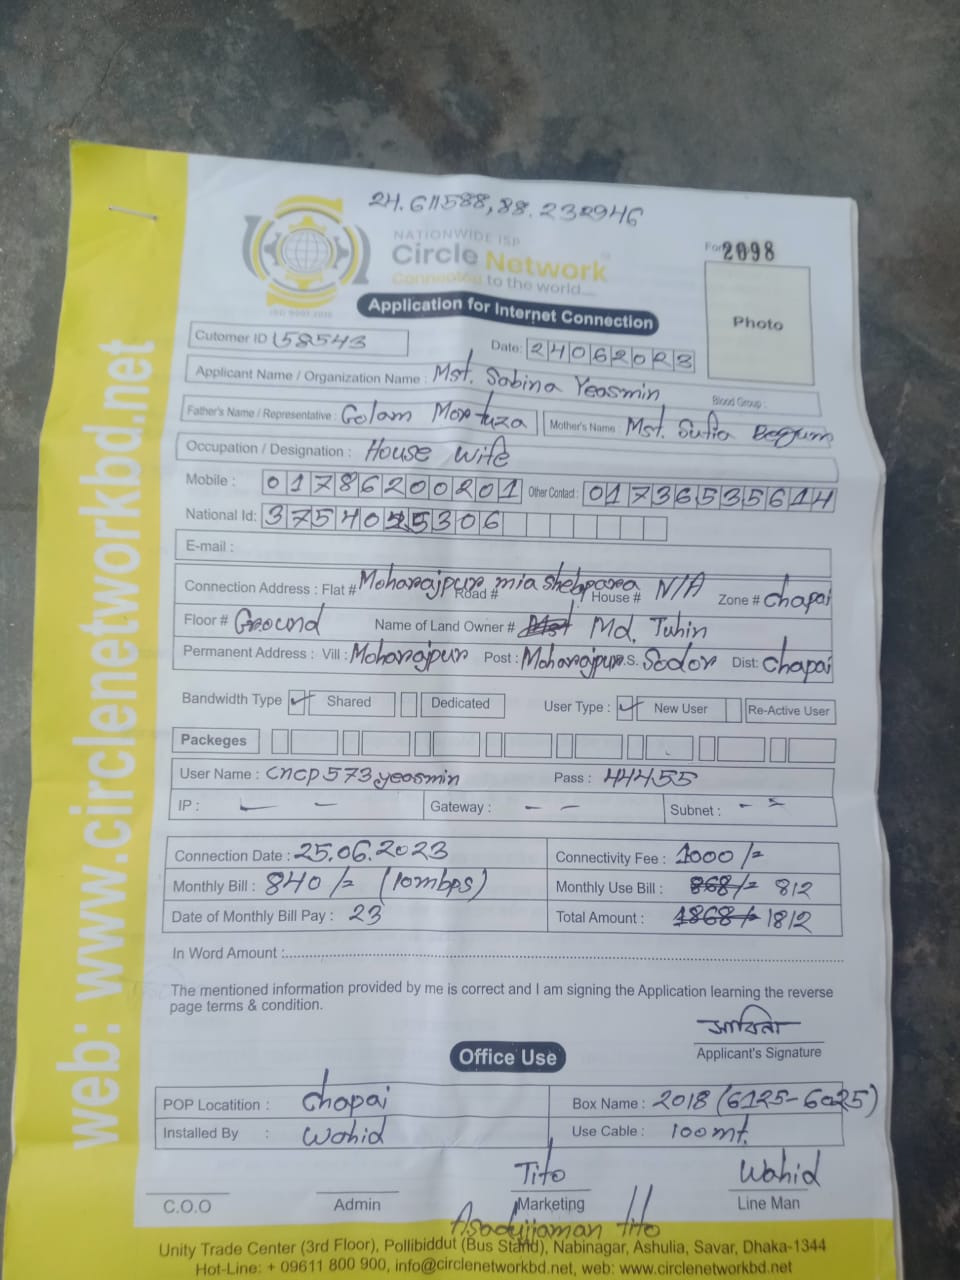 24.611588, 88.232946
NATIONWIDE ISP
Circle Network
Connected to the world....
ISO 9001:2015
2098
Application for Internet Connection
Photo
Cutomer ID 158543
Date: 24062023
Applicant Name / Organization Name : Mst. Sabina Yeasmin
Blood Group :
Father's Name / Representative : Golam Mortuza Mother's Name : Mst. Sufia Begum
Occupation / Designation : House wife
Mobile : 01786200201 Other Contact : 01736535614
National Id: 3754025306
E-mail :
Connection Address : Flat # Moharajpur mia Road # House # N/A Zone # Chapai
Floor # Ground Name of Land Owner # Md. Tuhin
Permanent Address : Vill : Moharajpur Post : Moharajpur P.S. Sador Dist: Chapai
Bandwidth Type ✓ Shared Dedicated User Type : ✓ New User Re-Active User
Packeges
User Name : cncp573yeasmin Pass : 44455
IP : — – Gateway : – – Subnet : – –
Connection Date : 25.06.2023 Connectivity Fee : 1000/=
Monthly Bill : 840/= (10mbps) Monthly Use Bill : 868/= 812
Date of Monthly Bill Pay : 23 Total Amount : 1868/= 1812
In Word Amount :
The mentioned information provided by me is correct and I am signing the Application learning the reverse
page terms & condition.
সাবিনা
Applicant's Signature
Office Use
POP Locatition : Chapai Box Name : 2018 (6125-6025)
Installed By : Wahid Use Cable : 100mt.
Tito Wahid
C.O.O Admin Marketing Line Man
Asadujjaman tito
Unity Trade Center (3rd Floor), Pollibiddut (Bus Stand), Nabinagar, Ashulia, Savar, Dhaka-1344
Hot-Line: + 09611 800 900, info@circlenetworkbd.net, web: www.circlenetworkbd.net
web: www.circlenetworkbd.net